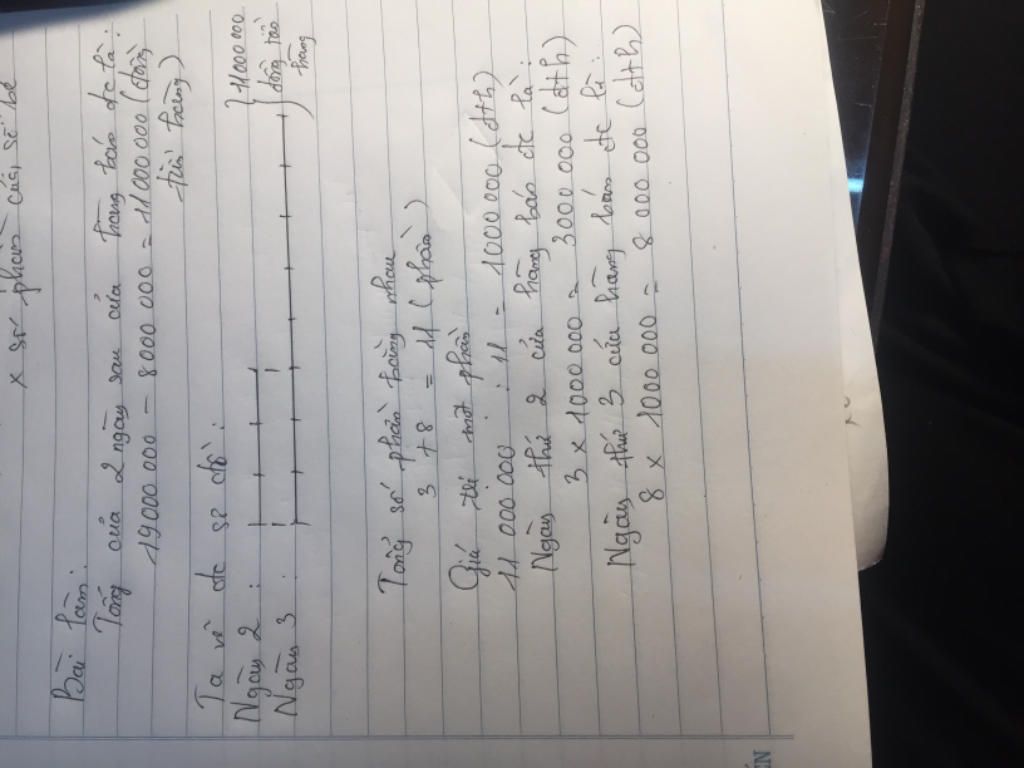 x số phần của số bé
Bài làm:
Tổng của 2 ngày sau cửa hàng bán đc là:
19000 000 - 8000 000 = 11 000 000 (đồng
tiền hàng)
Ta vẽ đc sơ đồ:
Ngày 2 :
Ngày 3 :
11000 000
đồng tiền
hàng
Tổng số phần bằng nhau
3 + 8 = 11 (phần)
Giá trị một phần
11 000 000 : 11 = 1000 000 (đth)
Ngày thứ 2 cửa hàng bán đc là:
3 x 1000 000 = 3000 000 (đth)
Ngày thứ 3 cửa hàng bán đc là:
8 x 1000 000 = 8 000 000 (đth)
ÉN